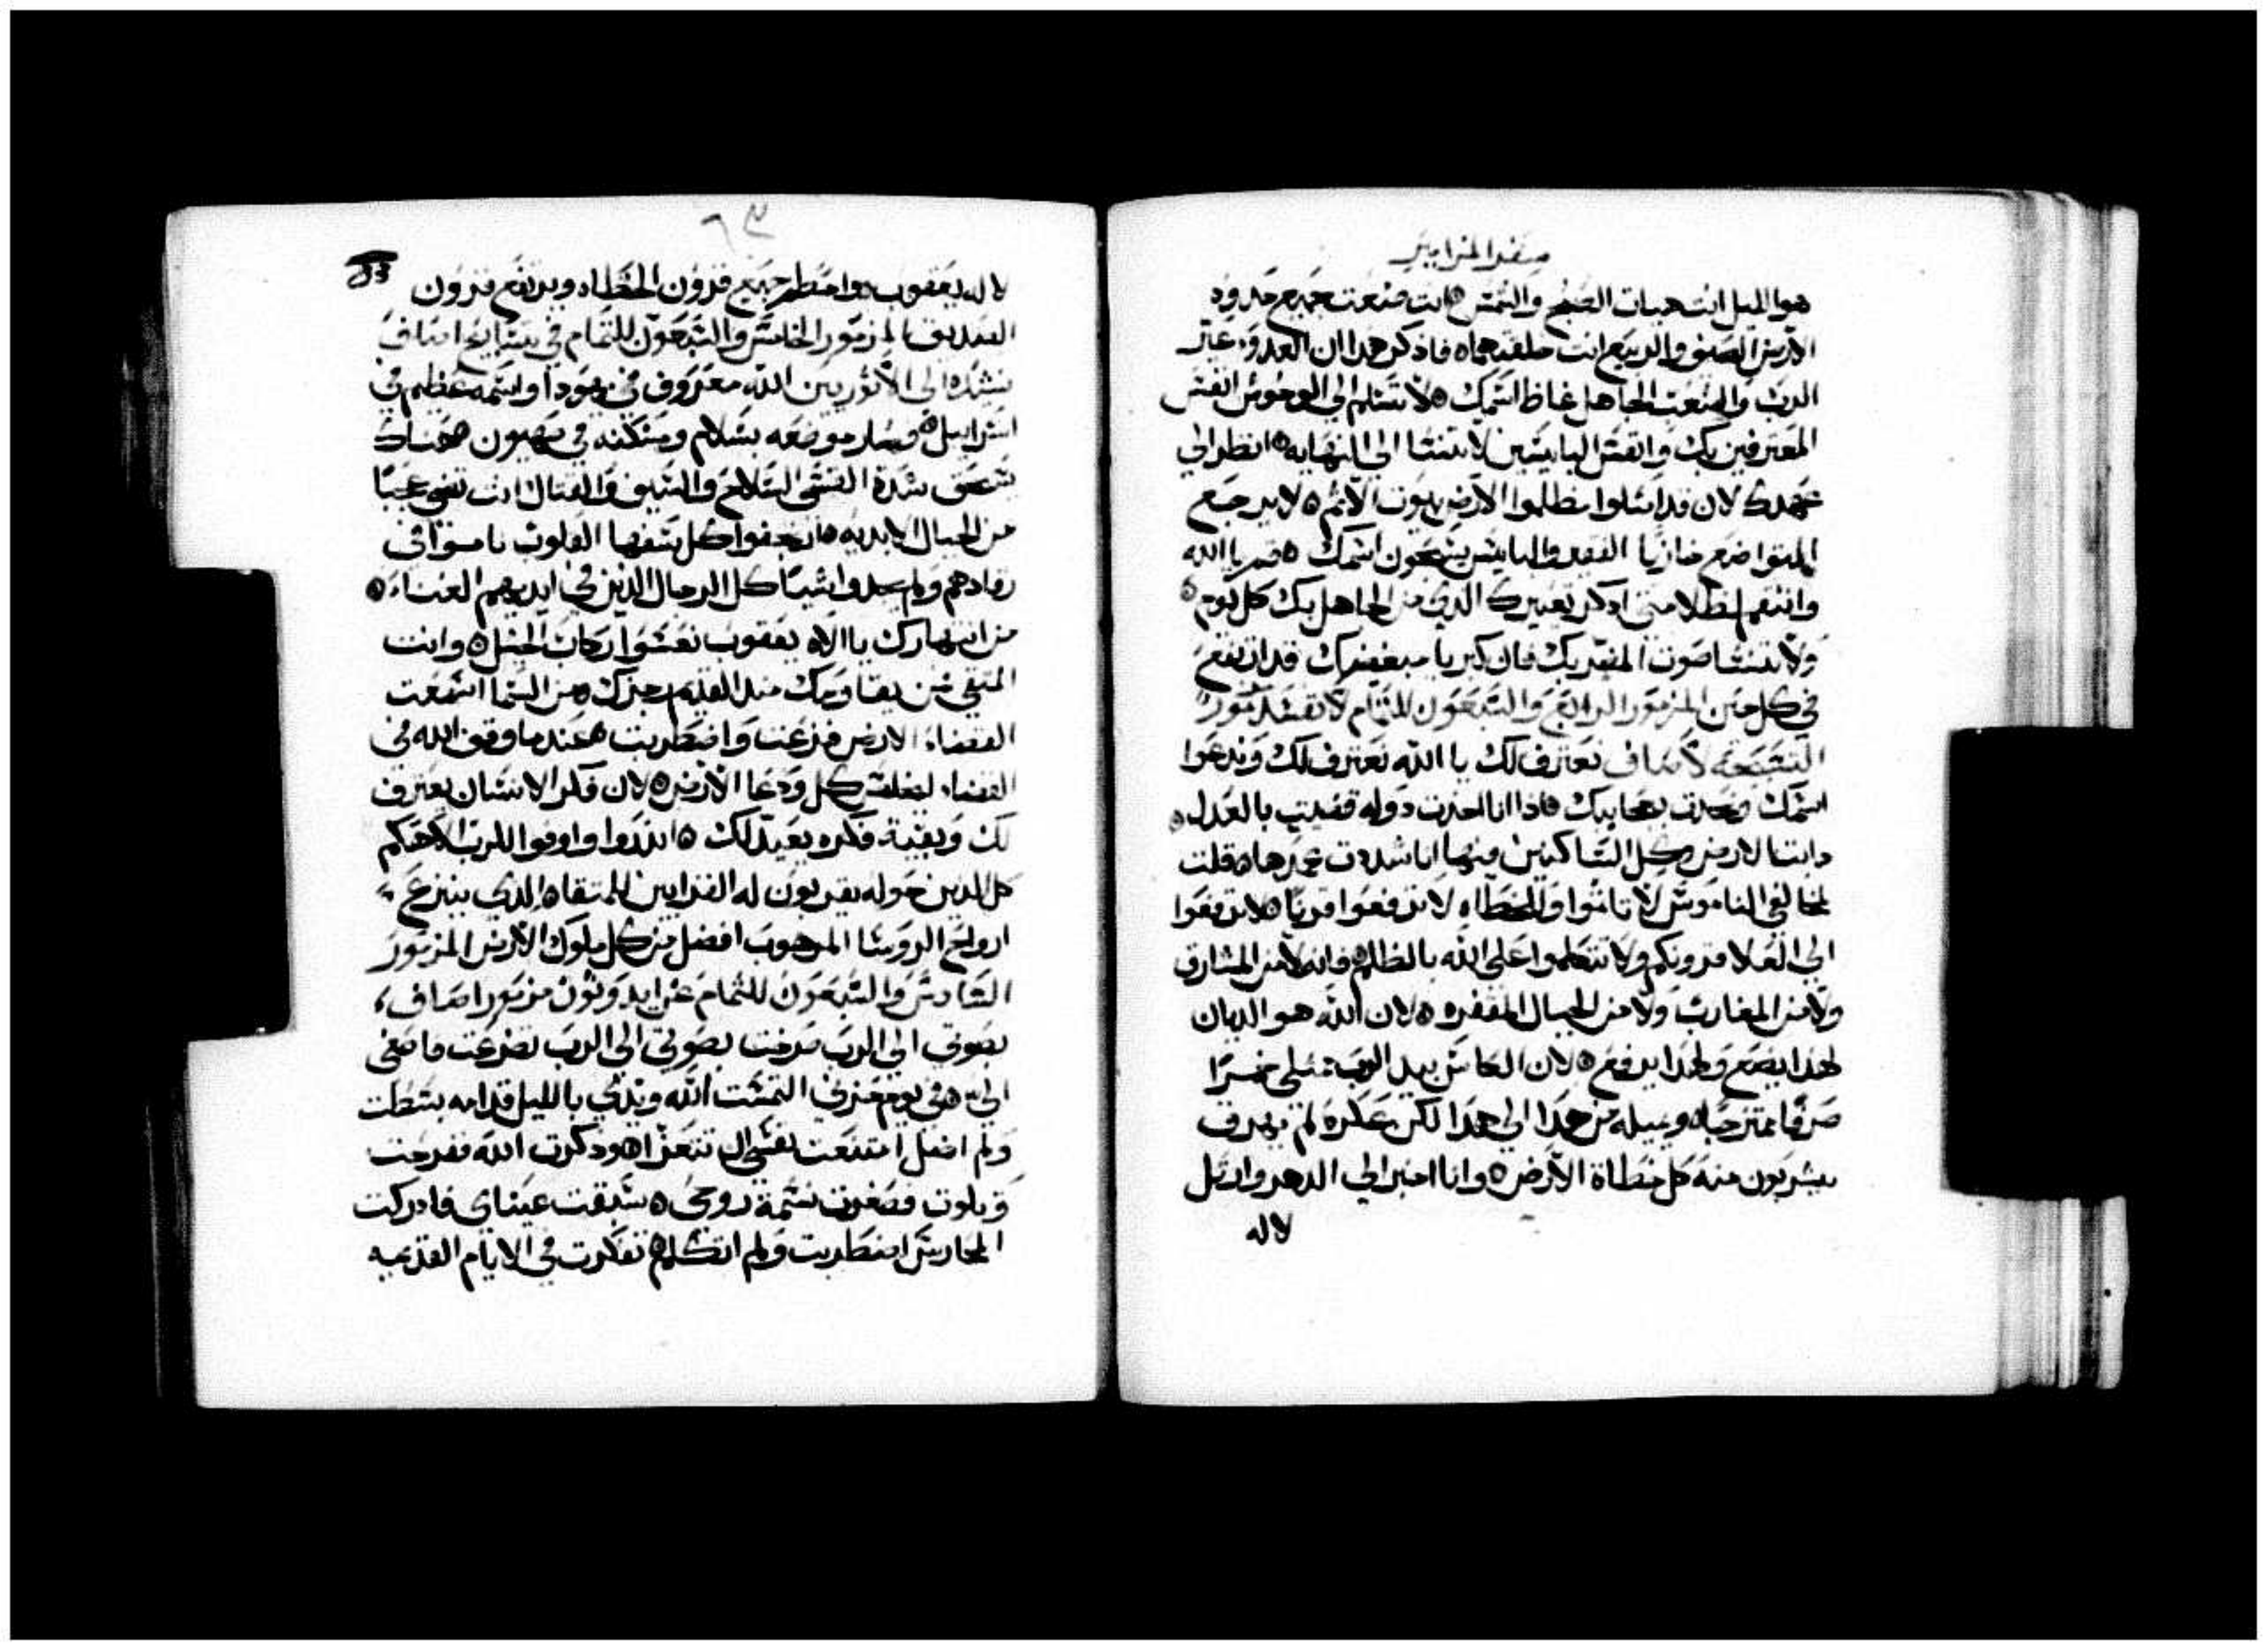 سفر المزامير
هو الليل انت هيات الصبح والشمس انت صنعت جميع حدود
الارض الصيف والربيع انت خلقتهما فاذكر هذا ان العدو عير
الرب والشعب الجاهل غاظ اسمك لا تسلم الي الوحوش انفس
المعترفين بك وانفس البايسين لا تنسا الي النهايه انظر الي
عهدك لان قد امتلوا مظلموا الارض بيوت الاثم لا يرجع
المتواضع خازيا الفقير والبايس يسبحون اسمك قم يا الله
وانتقم لظلامتي اذكر تعييرك الذي من الجاهل بك كل يوم
ولا تنسا صوت المتعديك فان كبريا مبغضيك قد ارتفع
في كل حين المزمور الرابع والسبعون للتمام لا تفسد مزمور
التسبحه لاساف نعترف لك يا الله نعترف لك وندعوا
اسمك ونحدث بعجايبك فاذا انا اخذت دوله قضيت بالعدل
دابت الارض وكل الساكنين فيها انا شددت عمدها قلت
لمخالفي الناموس لا تاثموا وللخطاه لا ترفعوا قرنا لا ترفعوا
الي العلا قرونكم ولا تتكلموا علي الله بالظلم فانه لا من المشارق
ولا من المغارب ولا من الجبال المقفره لان الله هو الديان
لهذا يضع ولهذا يرفع لان الكاس بيد الرب ممتلي خمرا
صرفا ممتزجا ويميله من هذا الي هذا لكن عكره لم يهرق
يشربون منه كل خطاة الارض وانا اخبر الي الدهر وارتل
لاله
٦٣
لاله يعقوب واحطم جميع قرون الخطاه ويرتفع قرون
الصديق المزمور الخامس والسبعون للتمام في تسابيح اساف
نشيده الي الاثوريين الله معروف في يهودا واسمه عظيم في
اسراييل وصار موضعه بسلام ومسكنه في صهيون هناك
سحق شدة القسي السلاح والسيف والقتال انت تضي عجبا
من الجبال الابديه ارتجفوا كل سفها القلوب ناموا في
رقادهم ولم يجدوا شيا كل الرجال الذين في ايديهم الغناء
من انتهارك يا اله يعقوب نعسوا ركاب الخيل وانت
من يقاومك منذ القديم رجزك من السما اسمعت
القضاء الارض فزعت واضطربت عندما وقف الله في
القضاء ليخلص كل ودعا الارض لان فكر الانسان يعترف
لك وبقية فكره يعيد لك انذروا واوفوا للرب الاهكم
كل الذين حوله يقربون له القرابين للمتقاه الذي ينزع
ارواح الروسا المرهوب افضل من كل ملوك الارض المزمور
السادس والسبعون للتمام عن ايدوثون مزمور اساف
بصوتي الي الرب صرخت بصوتي الي الرب تضرعت فاصغي
الي في يوم حزني التمست الله ويدي بالليل قدامه بسطت
ولم اضل امتنعت نفسي ان تتعزا وذكرت الله ففرحت
وتلوت فصغرت نسمة روحي سبقت عيناي فادركت
المحارس اضطربت ولم اتكلم تفكرت في الايام القديمه